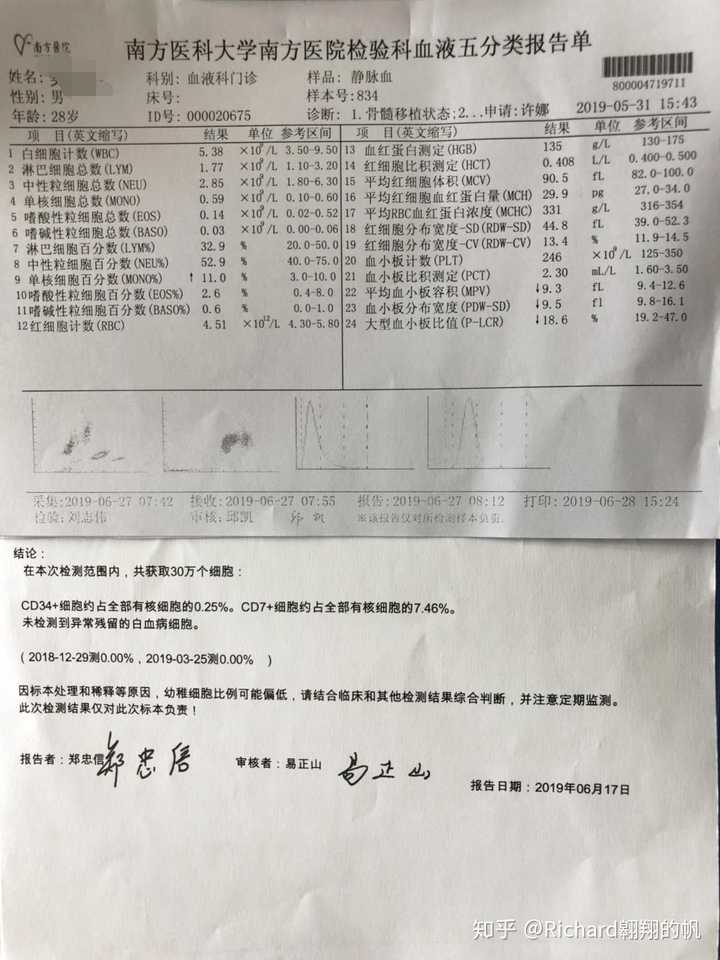 南方医院
南方医科大学南方医院检验科血液五分类报告单
姓名: 科别: 血液科门诊 样品: 静脉血
800004719711
性别: 男 床号: 样本号:834
年龄: 28岁 ID号: 000020675 诊断: 1.骨髓移植状态;2...申请:许娜 2019-05-31 15:43
项 目(英文缩写) 结果 单位 参考区间 项 目(英文缩写) 结果 单位 参考区间
1 白细胞计数(WBC) 5.38 ×10⁹/L 3.50-9.50 13 血红蛋白测定(HGB) 135 g/L 130-175
2 淋巴细胞总数(LYM) 1.77 ×10⁹/L 1.10-3.20 14 红细胞比积测定(HCT) 0.408 L/L 0.400-0.500
3 中性粒细胞总数(NEU) 2.85 ×10⁹/L 1.80-6.30 15 平均红细胞体积(MCV) 90.5 fL 82.0-100.0
4 单核细胞总数(MONO) 0.59 ×10⁹/L 0.10-0.60 16 平均红细胞血红蛋白量(MCH) 29.9 pg 27.0-34.0
5 嗜酸性粒细胞总数(EOS) 0.14 ×10⁹/L 0.02-0.52 17 平均RBC血红蛋白浓度(MCHC) 331 g/L 316-354
6 嗜碱性粒细胞总数(BASO) 0.03 ×10⁹/L 0.00-0.06 18 红细胞分布宽度-SD(RDW-SD) 44.8 fL 39.0-52.3
7 淋巴细胞百分数(LYM%) 32.9 % 20.0-50.0 19 红细胞分布宽度-CV(RDW-CV) 13.4 % 11.9-14.5
8 中性粒细胞百分数(NEU%) 52.9 % 40.0-75.0 20 血小板计数(PLT) 246 ×10⁹/L 125-350
9 单核细胞百分数(MONO%) ↑11.0 % 3.0-10.0 21 血小板比积测定(PCT) 2.30 mL/L 1.60-3.50
10 嗜酸性粒细胞百分数(EOS%) 2.6 % 0.4-8.0 22 平均血小板容积(MPV) ↓9.3 fL 9.4-12.6
11 嗜碱性粒细胞百分数(BASO%) 0.6 % 0.0-1.0 23 血小板分布宽度(PDW-SD) ↓9.5 fl 9.8-16.1
12 红细胞计数(RBC) 4.51 ×10¹²/L 4.30-5.80 24 大型血小板比值(P-LCR) ↓18.6 % 19.2-47.0
采集:2019-06-27 07:42 接收:2019-06-27 07:55 报告:2019-06-27 08:12 打印:2019-06-28 15:24
检验:刘志伟 审核:邱凯 邱凯 ※该报告仅对所检测样本负责.
结论：
在本次检测范围内，共获取30万个细胞：
CD34+细胞约占全部有核细胞的0.25%。CD7+细胞约占全部有核细胞的7.46%。
未检测到异常残留的白血病细胞。
（2018-12-29测0.00%，2019-03-25测0.00% ）
因标本处理和稀释等原因，幼稚细胞比例可能偏低，请结合临床和其他检测结果综合判断，并注意定期监测。
此次检测结果仅对此次标本负责！
报告者：郑忠信 郑忠信 审核者：易正山 易正山
报告日期：2019年06月17日
知乎 @Richard翱翔的帆